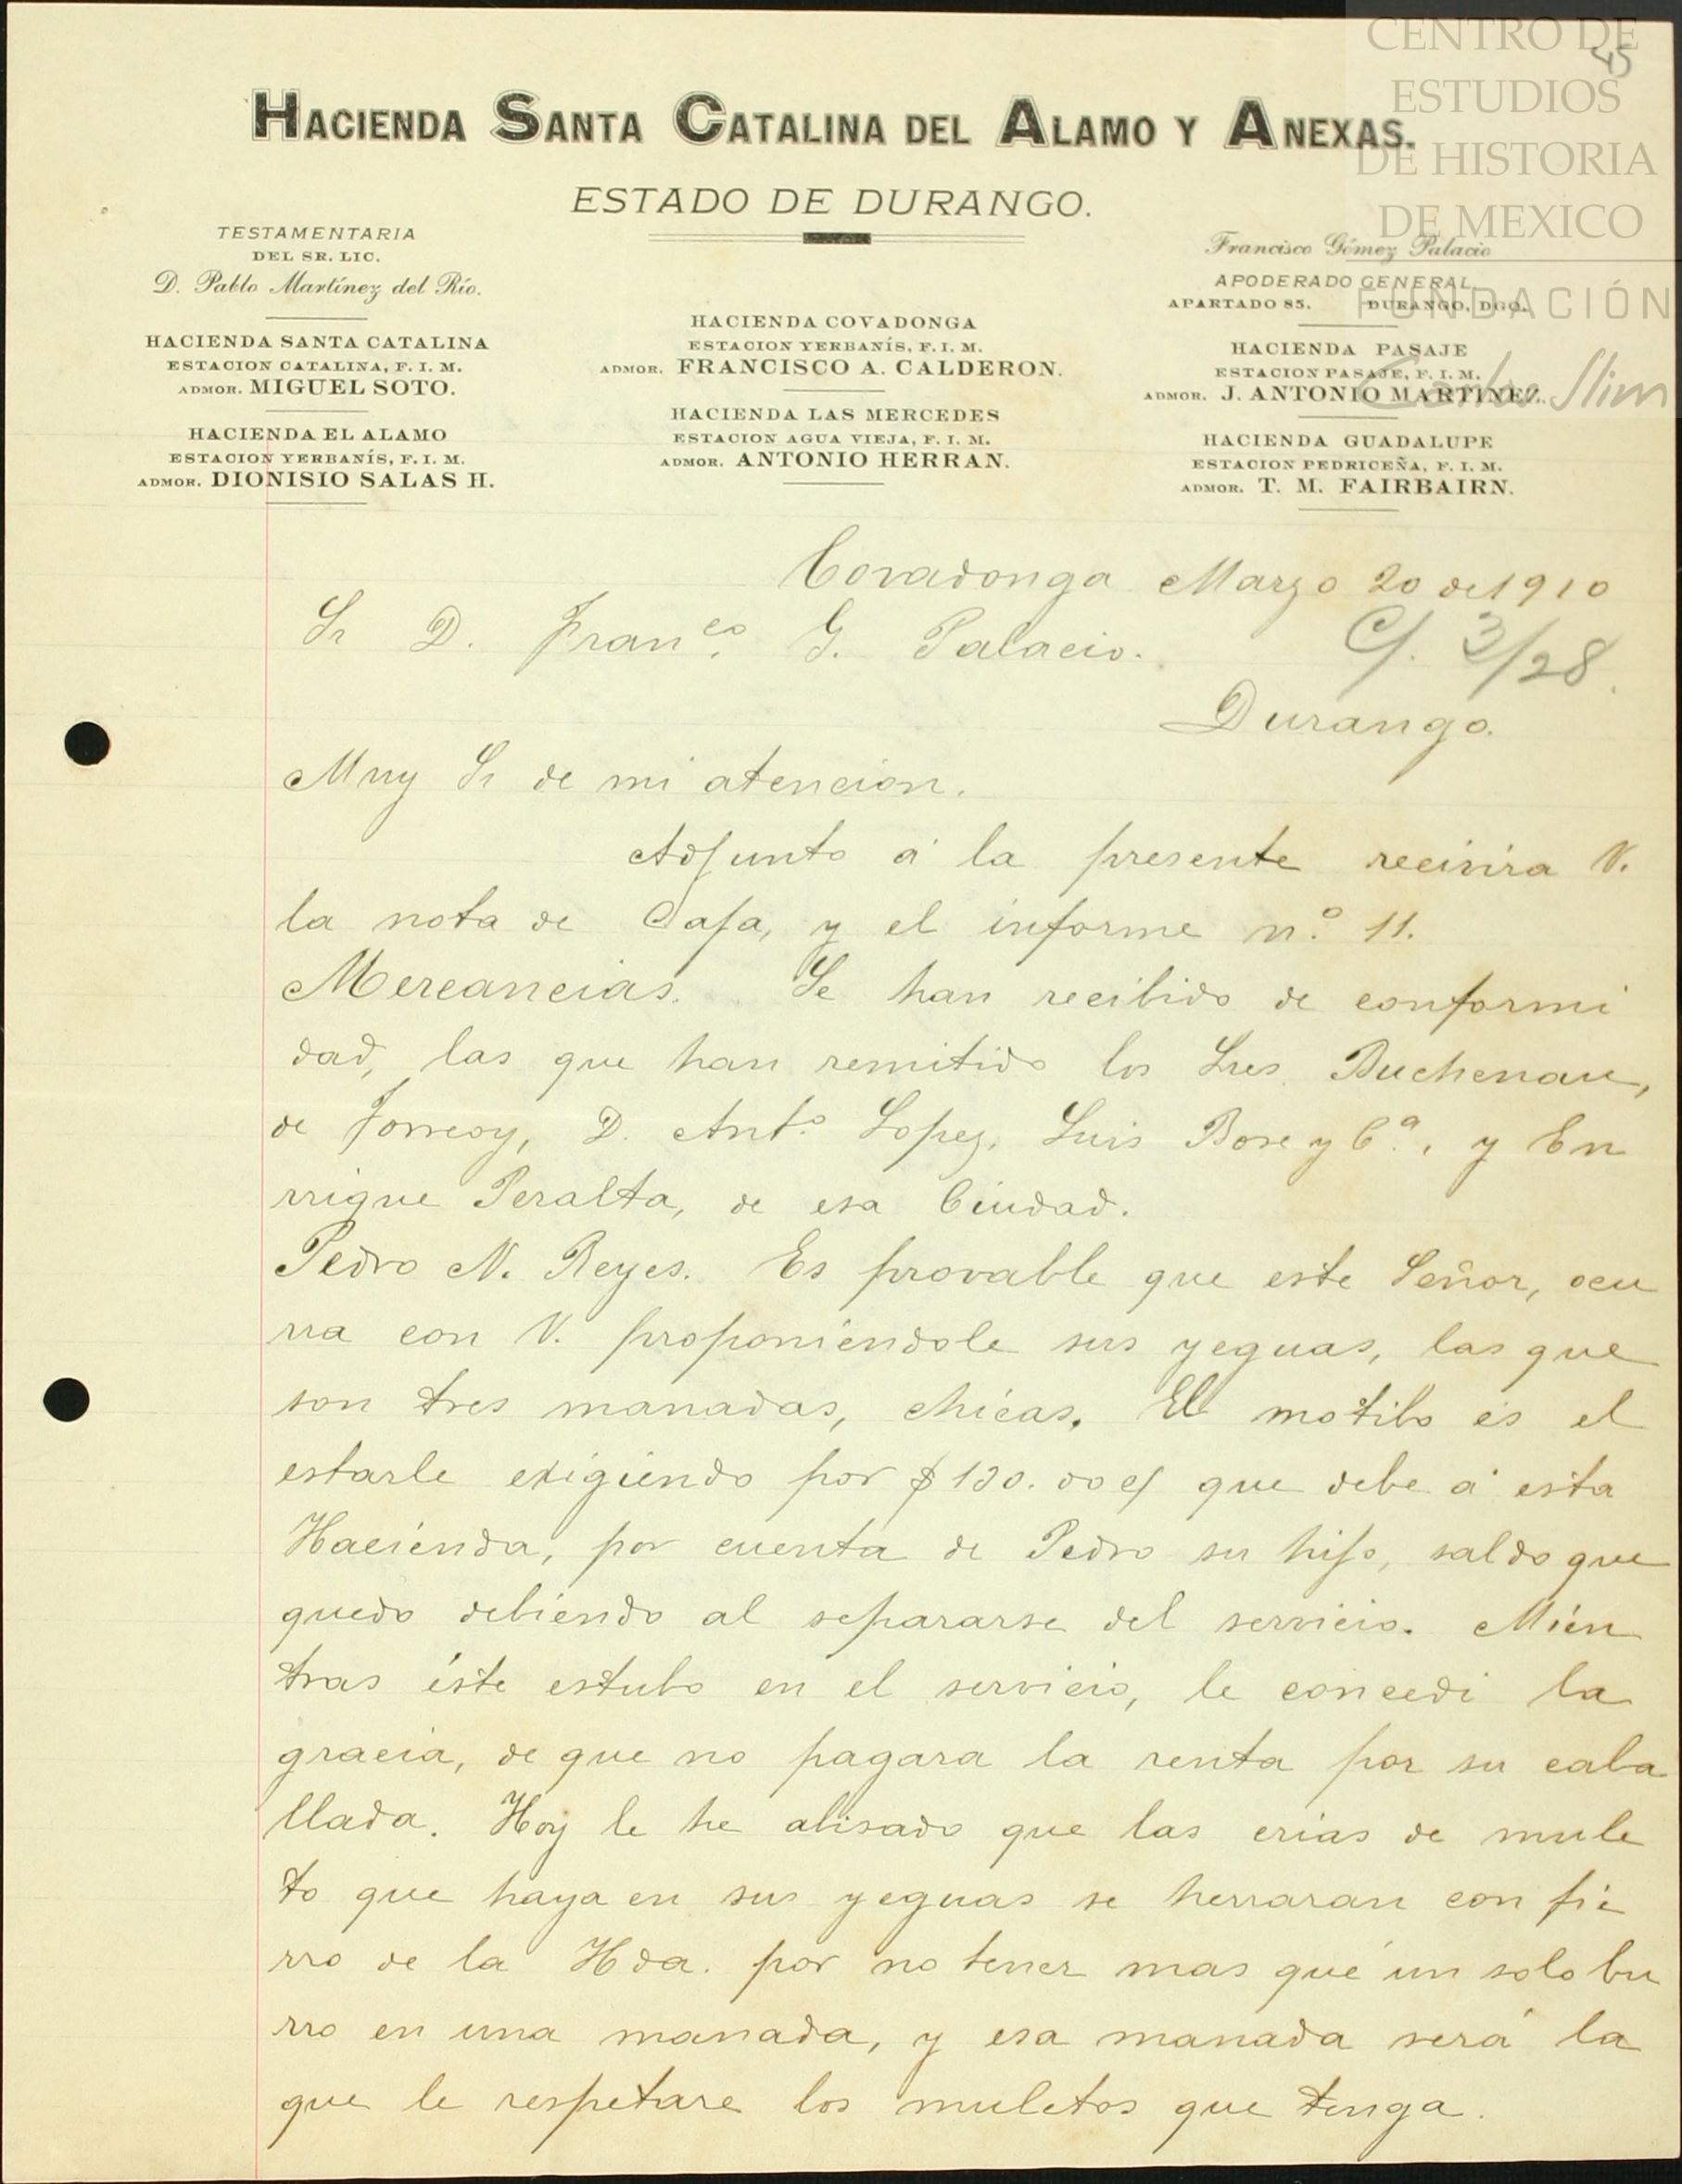 CENTRO DE
ESTUDIOS
DE HISTORIA
DE MEXICO
FUNDACIÓN
Carlos Slim
45
HACIENDA SANTA CATALINA DEL ALAMO Y ANEXAS.
ESTADO DE DURANGO.
TESTAMENTARIA
DEL SR. LIC.
D. Pablo Martínez del Río.
HACIENDA SANTA CATALINA
ESTACION CATALINA, F. I. M.
ADMOR. MIGUEL SOTO.
HACIENDA EL ALAMO
ESTACION YERBANÍS, F. I. M.
ADMOR. DIONISIO SALAS H.
HACIENDA COVADONGA
ESTACION YERBANÍS, F. I. M.
ADMOR. FRANCISCO A. CALDERON.
HACIENDA LAS MERCEDES
ESTACION AGUA VIEJA, F. I. M.
ADMOR. ANTONIO HERRAN.
Francisco Gómez Palacio
APODERADO GENERAL
APARTADO 85. DURANGO, DGO.
HACIENDA PASAJE
ESTACION PASAJE, F. I. M.
ADMOR. J. ANTONIO MARTINEZ.
HACIENDA GUADALUPE
ESTACION PEDRICEÑA, F. I. M.
ADMOR. T. M. FAIRBAIRN.
Covadonga Marzo 20 de 1910
Sr D. Franco. G. Palacio.
C/. 3/28.
Durango.
Muy Sr de mi atencion.
Adjunto á la presente recivira V.
la nota de Caja, y el informe n.º 11.
Mercancias. Se han recibido de conformi
dad, las que han remitido los Sres. Buchenau,
de Torreoy, D. Anto. Lopez, Luis Bose y Ca., y En
rrique Peralta, de esa Ciudad.
Pedro N. Reyes. Es provable que este Señor, ocu
rra con V. proponiendole sus yeguas, las que
son tres manadas, chicas. El motibo es el
estarle exigiendo por $130.00 c/ que debe á esta
Hacienda, por cuenta de Pedro su hijo, saldo que
quedo debiendo al separarse del servicio. Mien
tras éste estubo en el servicio, le concedi la
gracia, de que no pagara la renta por su caba
llada. Hoy le he abisado que las crias de mule
to que haya en sus yeguas se herraran con fie
rro de la Hda. por no tener mas que un solo bu
rro en una manada, y esa manada será la
que le respetare los muletos que tenga.